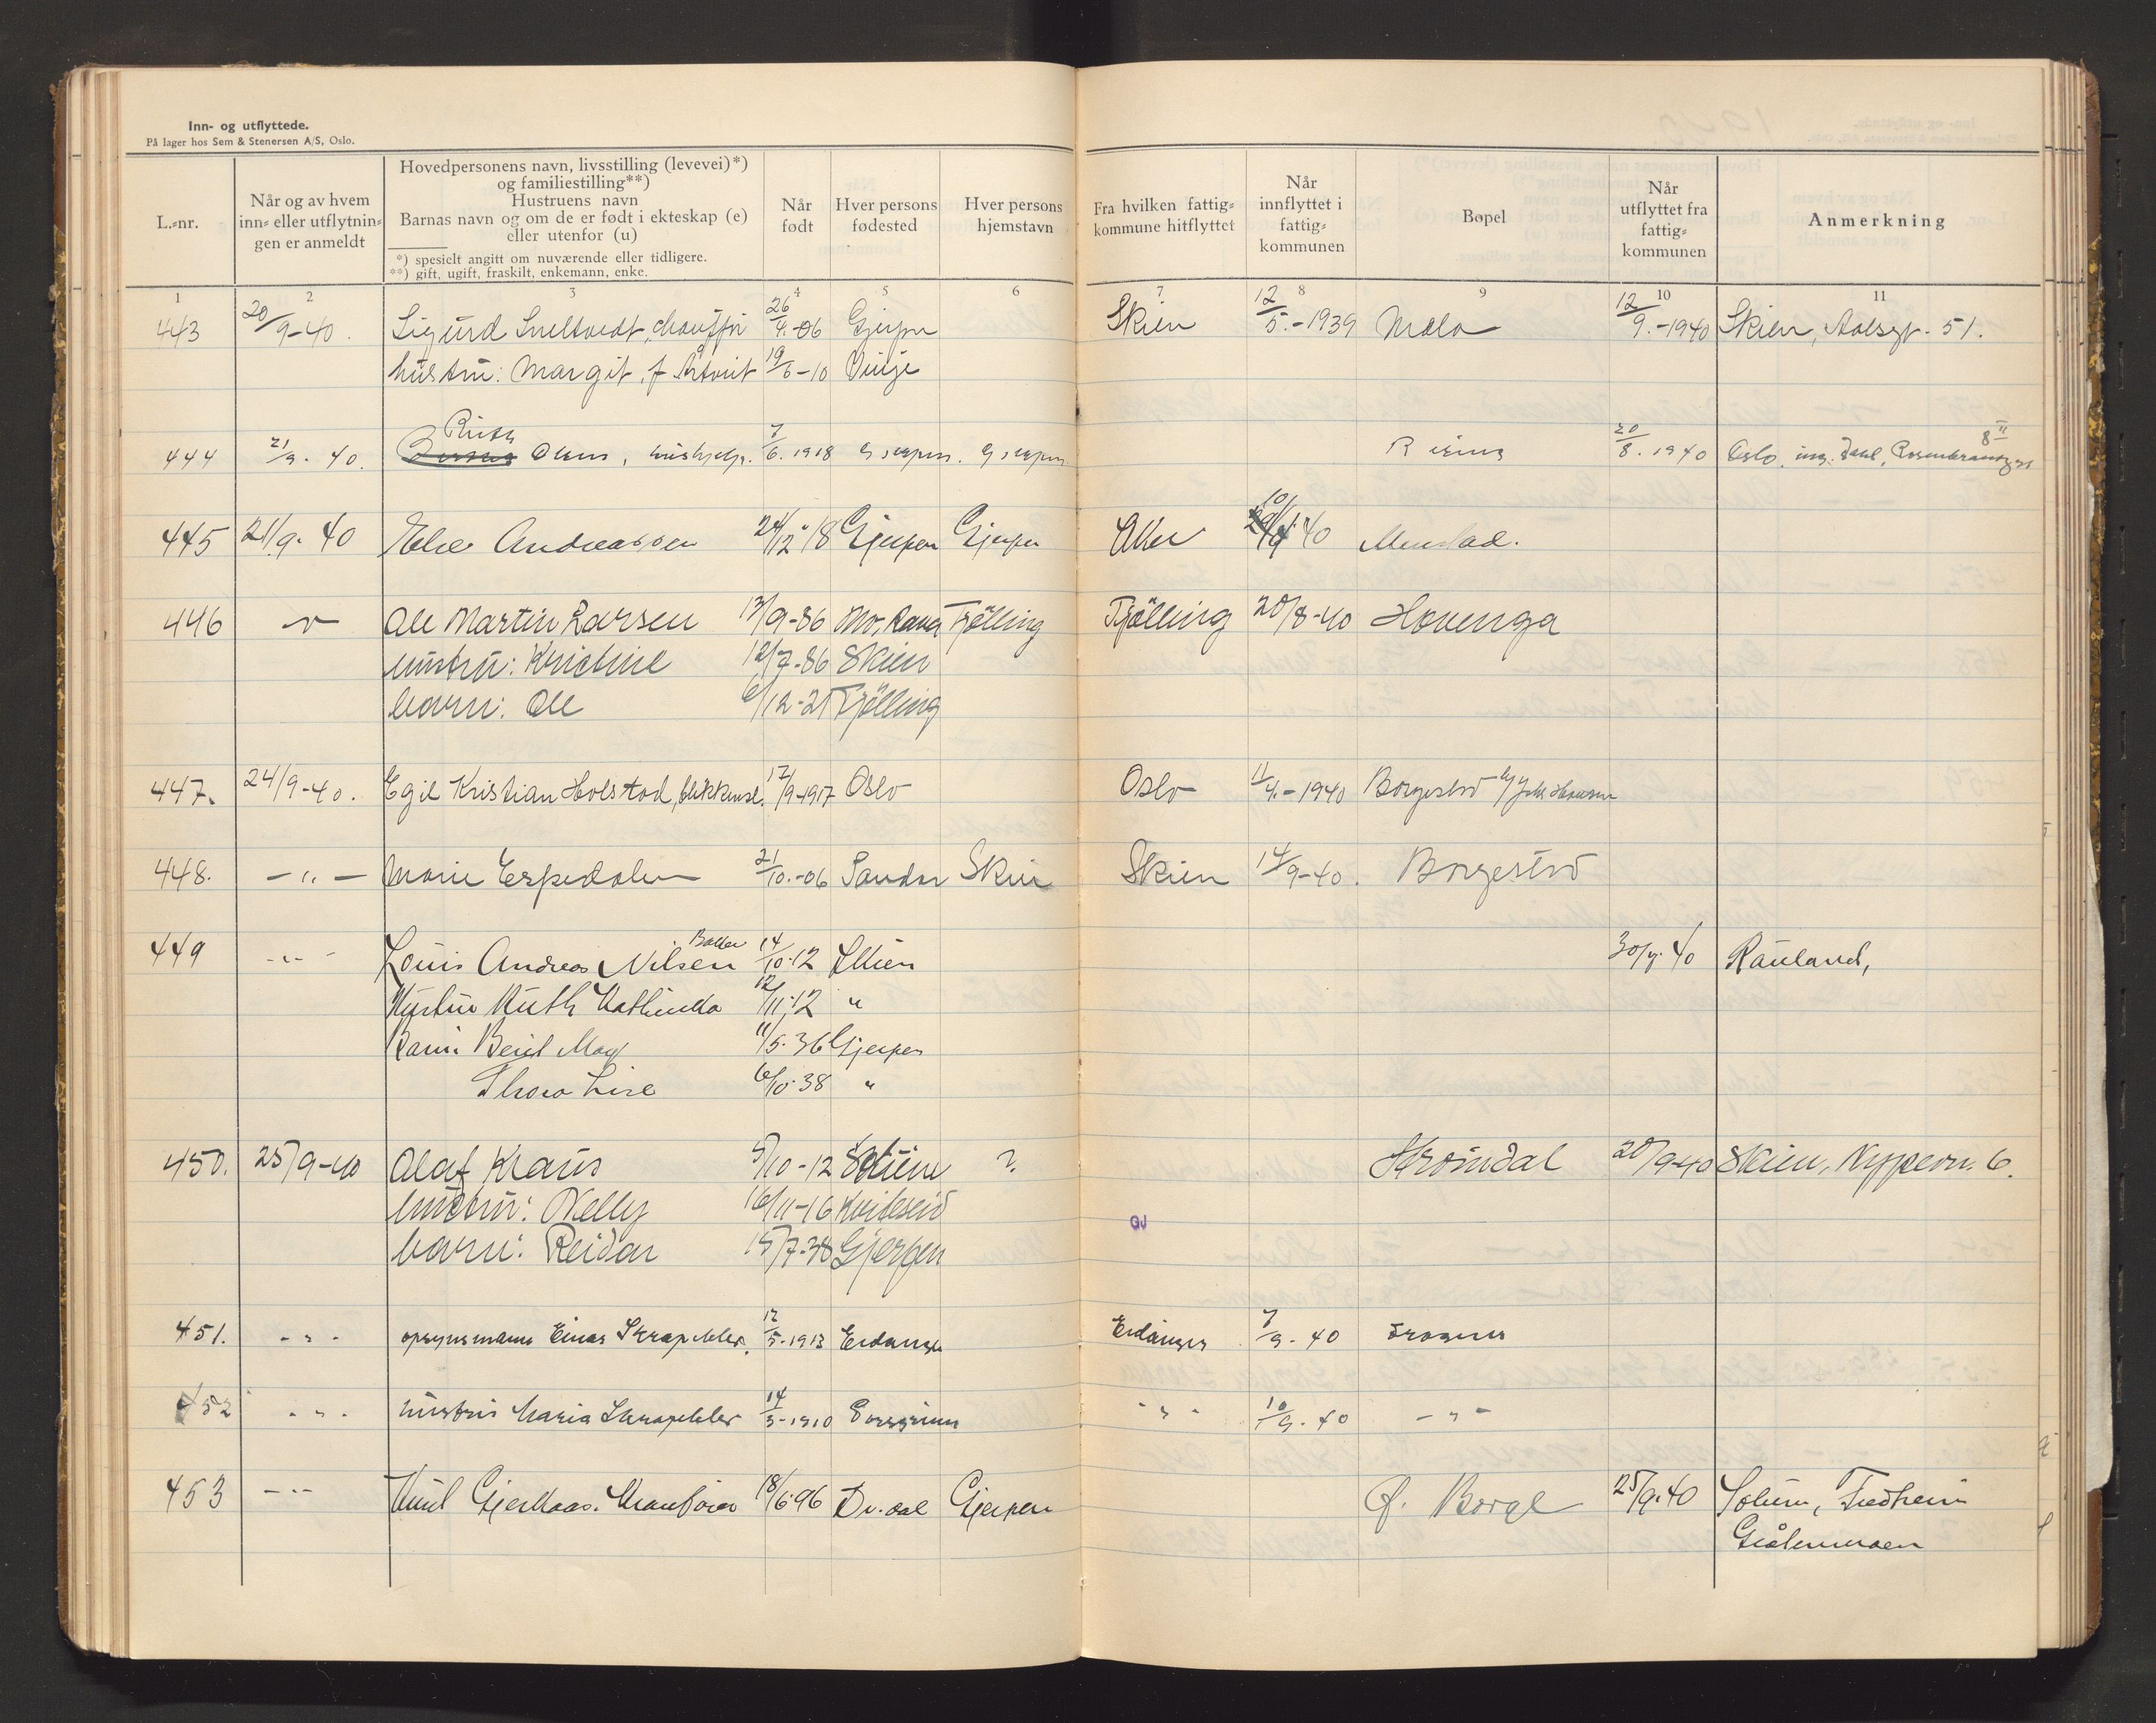 Inn- og utflyttede.
På lager hos Sem & Stenersen A/S, Oslo.
L.-nr.
Når og av hvem inn- eller utflytnin-gen er anmeldt
Hovedpersonens navn, livsstilling (levevei)*)
og familiestilling**)
Hustruens navn
Barnas navn og om de er født i ekteskap (e)
eller utenfor (u)
*) spesielt angitt om nuværende eller tidligere.
**) gift, ugift, fraskilt, enkemann, enke.
Når født
Hver persons fødested
Hver persons hjemstavn
Fra hvilken fattig-kommune hitflyttet
Når innflyttet i fattig-kommunen
Bopel
Når utflyttet fra fattig-kommunen
Anmerkning
1 2 3 4 5 6 7 8 9 10 11
443 20/9-40. Sigurd Sneltvedt, 26/4.-06 Gjerpen Skien 12/5.-1939 Mæla 12/9.-1940 Skien, 51.
hustru: Margit, f. 19/6-10 Vinje
Ruth
444 21/9. 40. Olsen, hushjelp. 7/6. 1918 Gjerpen. Gjerpen. Rising 20/8. 1940 Oslo, ing. Dahl,
8 II
445 21/9. 40 Else Andreassen 24/2 18 Gjerpen Gjerpen Aker 40 Menstad.
446 Ole Martin Larsen 13/9-86 Tjølling Tjølling 20/8-40 Hovenga
hustru: Kristine 12/7-86 Skien
barn: Ole 6/12-21 Tjølling
447. 24/9-40. Egil Kristian Holstad, 17/9-1917 Oslo Oslo 11/9.-1940 Borgestad
448. - " - Marie Espedalen 21/10.-06 Sandar Skien Skien 14/9-40. Borgestad
449 - " - Louis Andreas Nilsen 14/10-12 Skien 30/9. 40 Rauland,
Hustru Ruth Kathinka 12/11-12 "
Barn: Berit May 11/5-36 Gjerpen
Thora Lise 6/10-38 "
450. 25/9-40 Olaf Klaus 5/10-12 Solum ?. Strømdal 20/9-40 Skien, 6.
hustru: Nelly 16/11-16 Kviteseid
GJ
barn: Reidar 15/7-38 Gjerpen
451. - " - opsynsmann Einar Skrapekler. 12/5-1913 Eidanger Eidanger 7/9. 40 Frogner
452 - " - hustru Maria Skrapekler 14/3-1910 Porsgrunn - " - 10/9. 40 - " -
453 - " - 18/6 96 Gjerpen Ø. Borge 25/9.40 Solum, Fredheim